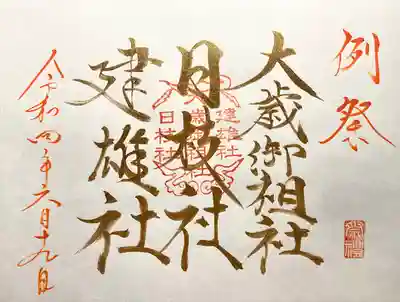 例祭
大歳御祖社
日枝社
建雄社
令和四年六月十九日
建雄社
大歳御祖社
日枝社